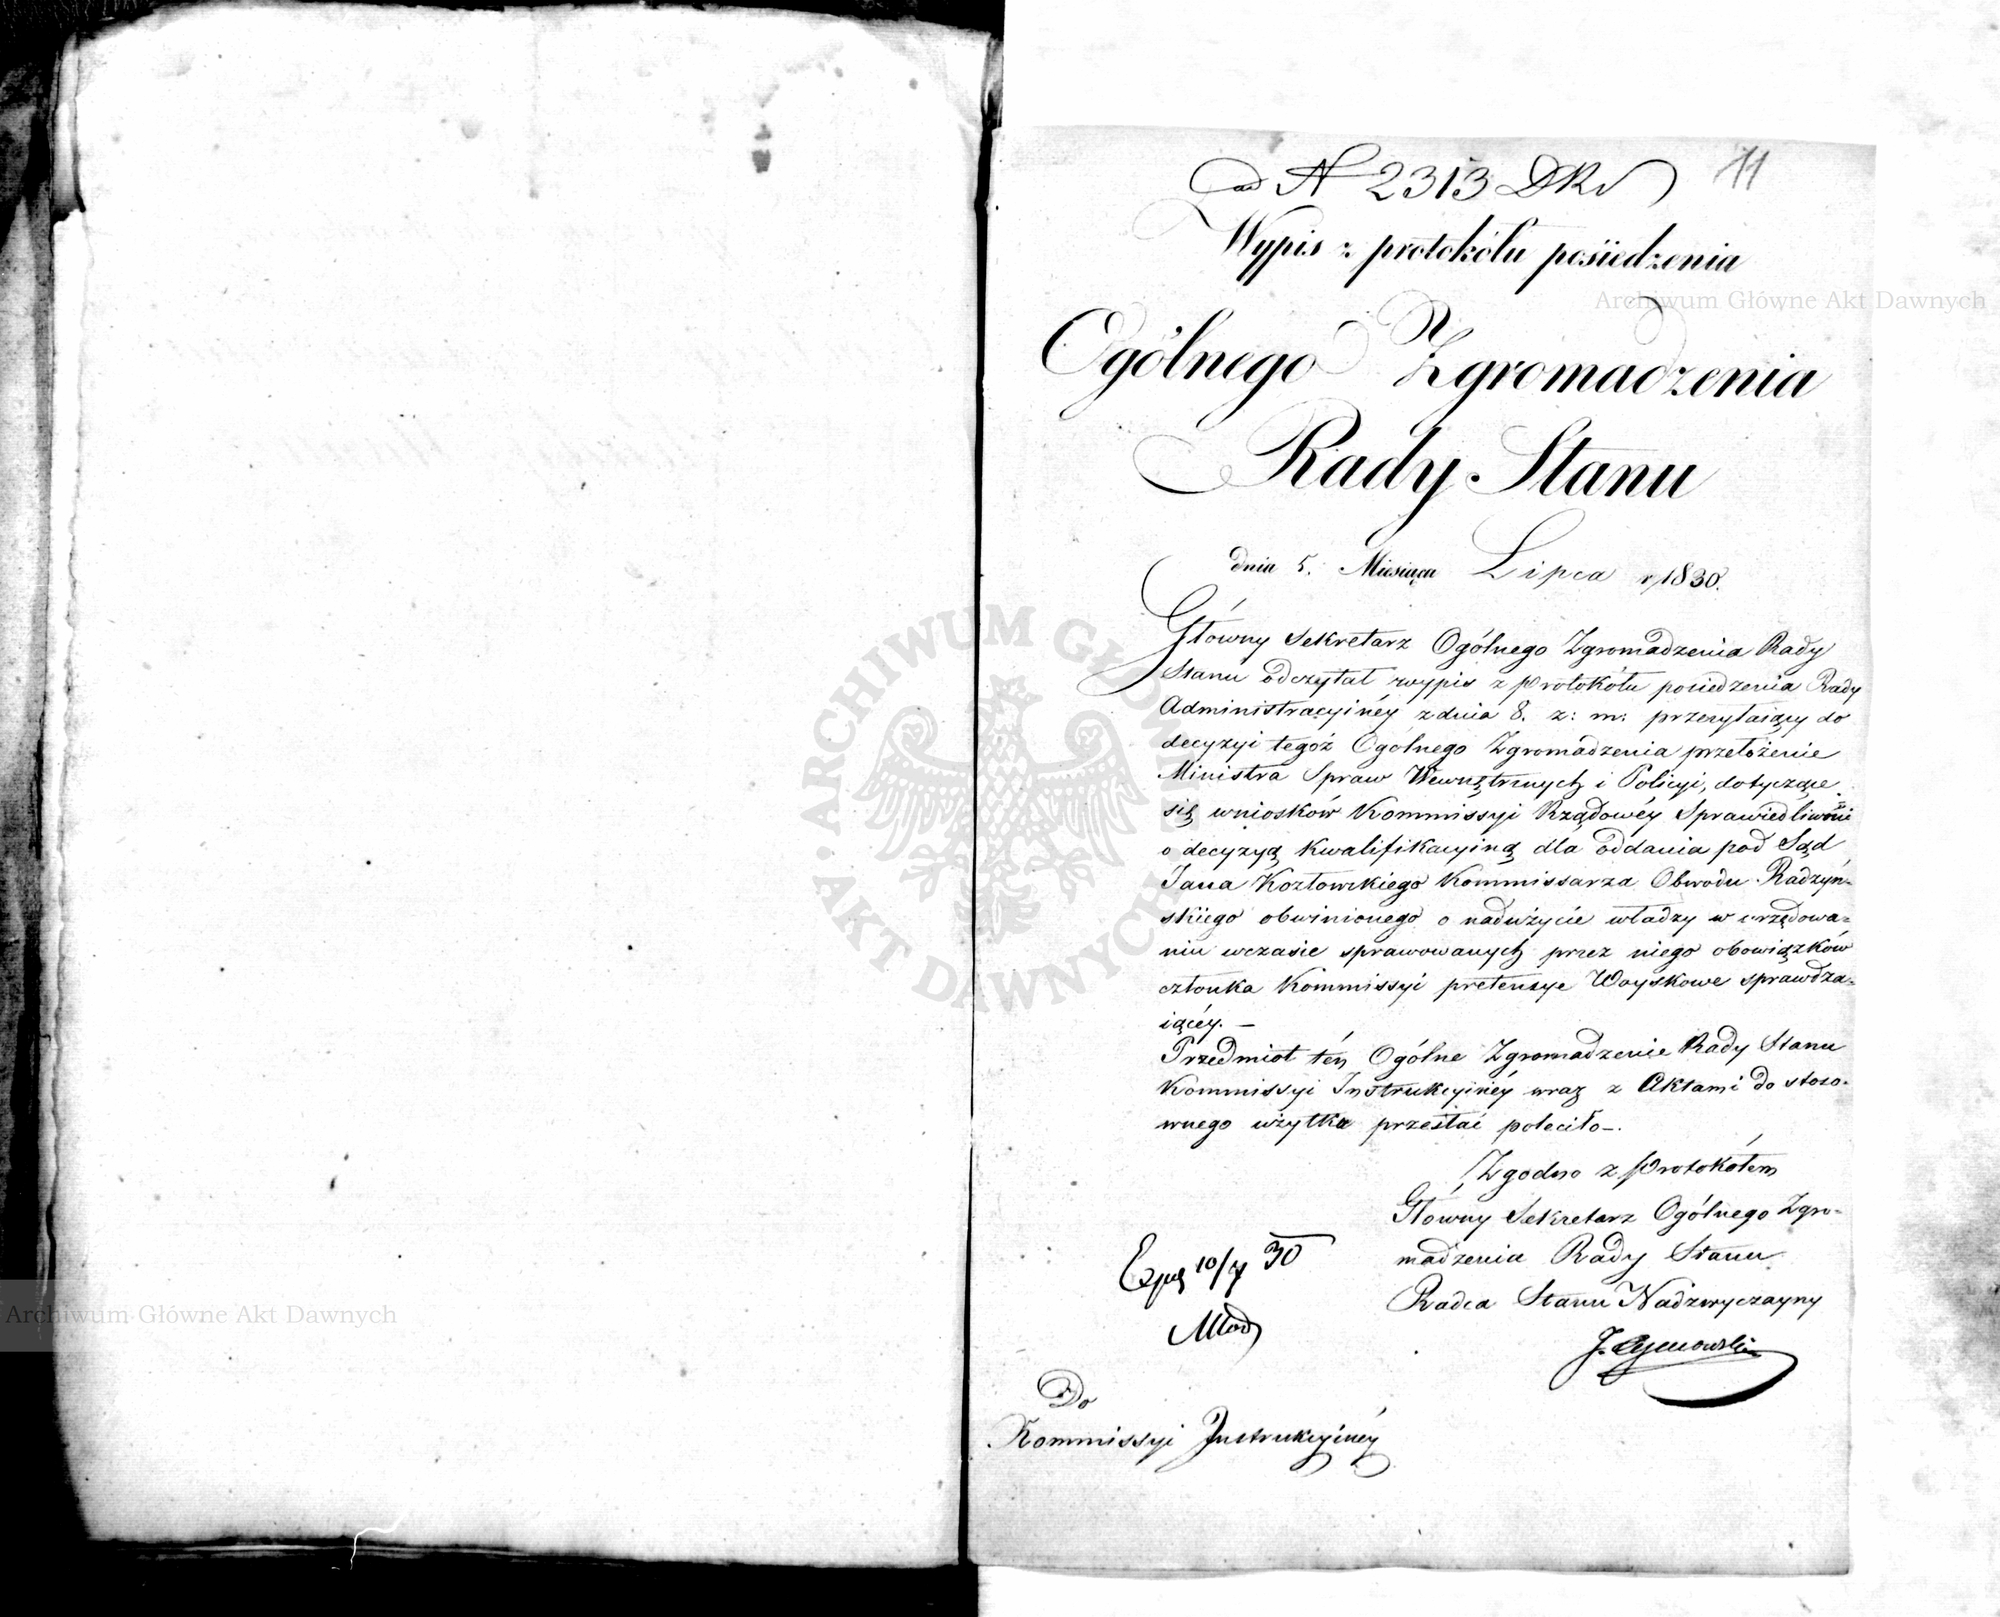 ad N 2313 DKr
11
Wypis z protokółu posiedzenia
Ogólnego Zgromadzenia
Rady Stanu
dnia 5. Miesiąca Lipca r 1830.
Główny Sekretarz Ogólnego Zgromadzenia Rady
Stanu odczytał wypis z protokółu posiedzenia Rady
Administracyinéy z dnia 8. z: m: przesyłaiący do
decyzyi tegoż Ogólnego Zgromadzenia przełożenie
Ministra Spraw Wewnętrznych i Policyi, dotyczące
się wniosków Kommissyi Rządowéy Sprawiedliwości
o decyzyą kwalifikacyiną dla oddania pod Sąd
Jana Kozłowskiego Kommissarza Obwodu Radzyń-
skiego obwinionego o nadużycie władzy w urzędowa-
niu wczasie sprawowanych przez niego obowiązków
członka Kommissyi pretensye Woyskowe sprawdza-
iącéy. —
Przedmiot ten Ogólne Zgromadzenie Rady Stanu
Kommissyi Instrukcyinéy wraz z Aktami do stoso-
wnego użytku przesłać poleciło —.
Zgodno z protokółem
Główny Sekretarz Ogólnego Zgro-
madzenia Rady Stanu
Radca Stanu Nadzwyczayny
10/7 30
Do
Kommissyi Instrukcyinéy
Archiwum Główne Akt Dawnych
Archiwum Główne Akt Dawnych
ARCHIWUM GŁÓWNE AKT DAWNYCH